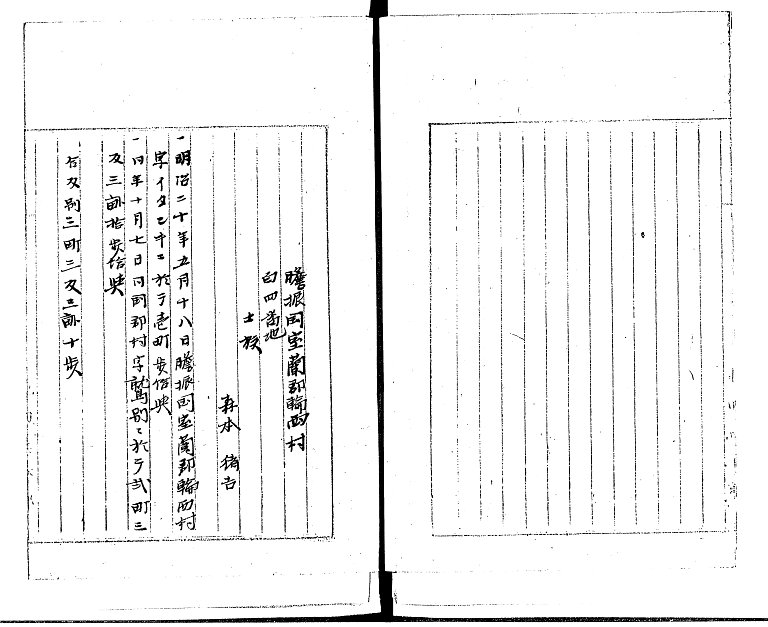 膽振国室蘭郡輪西村
百四番地
士族
森本 猪吉
一明治二十年五月十八日膽振国室蘭郡輪西村
字イタンキニ於テ壱町歩倍典
一同年十月七日同国郡村字鷲別ニ於テ弐町三
反三畝拾歩倍典
合反別三町三反三畝十歩